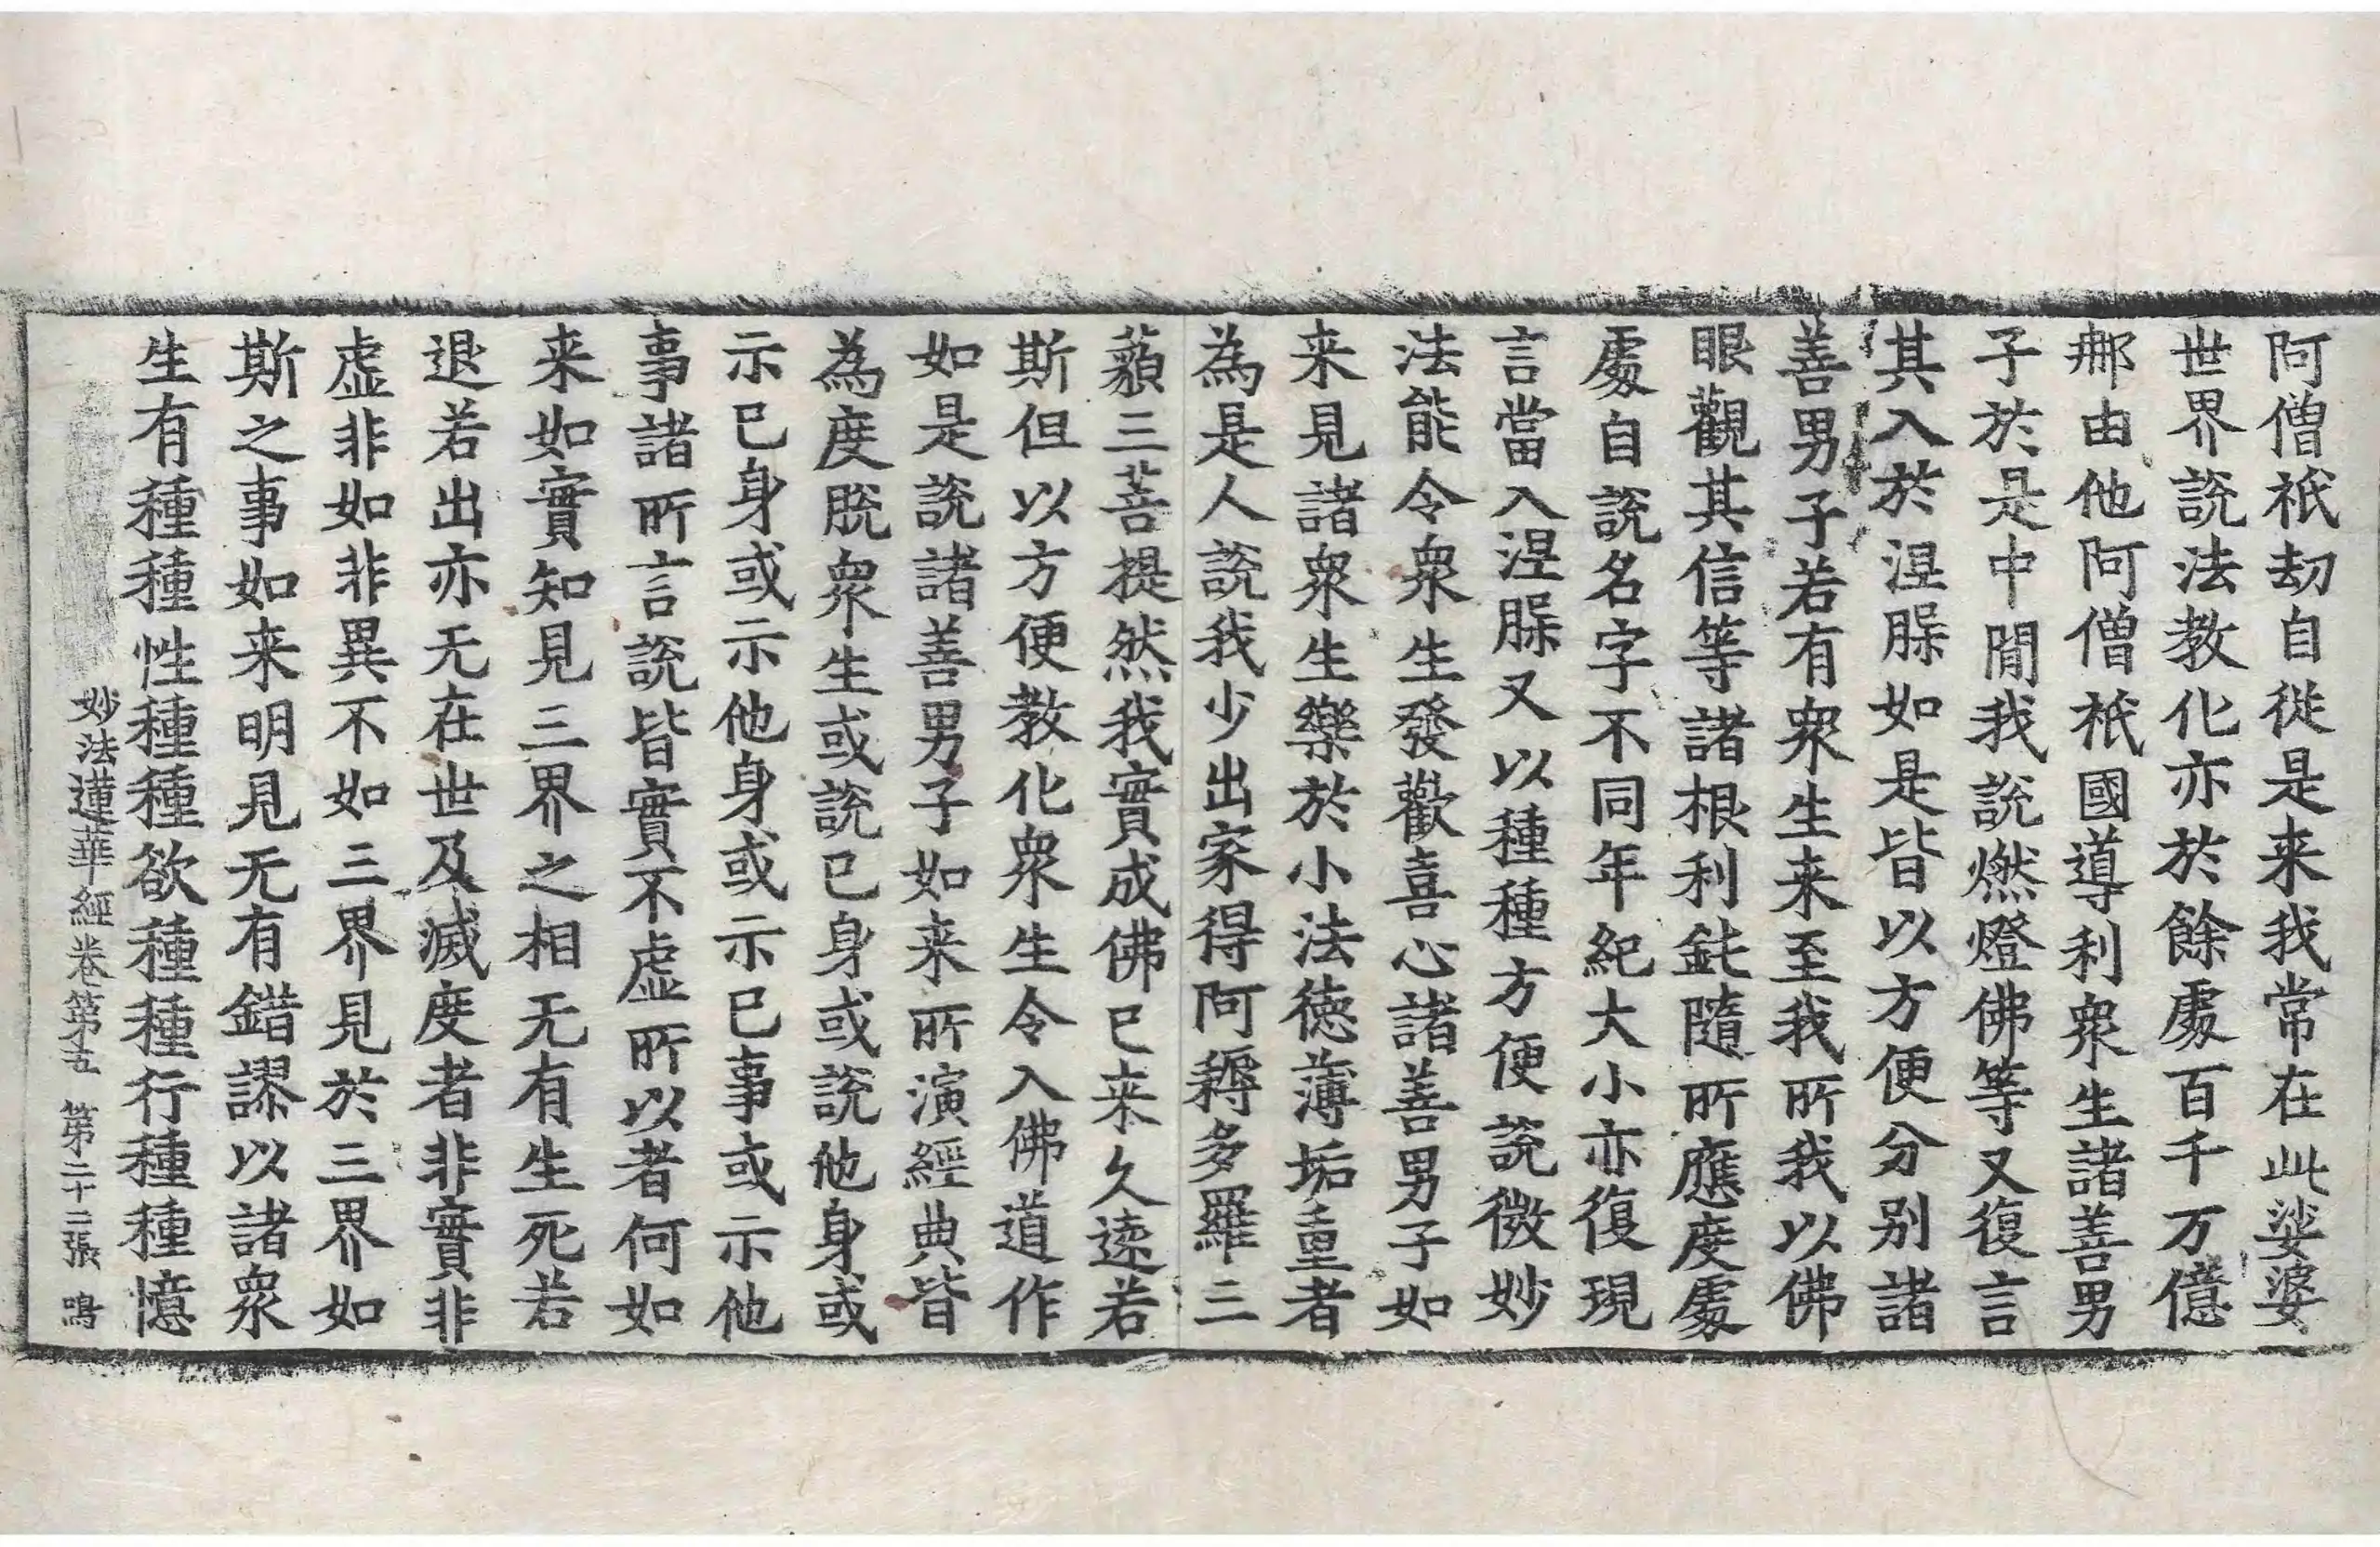 阿僧祇劫自從是来我常在此娑婆
世界說法教化亦於餘處百千万億
那由他阿僧祇國導利衆生諸善男
子於是中閒我說燃燈佛等又復言
其入於涅槃如是皆以方便分别諸
善男子若有衆生来至我所我以佛
眼觀其信等諸根利鈍隨所應度處
處自說名字不同年紀大小亦復現
言當入涅槃又以種種方便說微妙
法能令衆生發歡喜心諸善男子如
来見諸衆生樂於小法德薄垢重者
為是人說我少出家得阿耨多羅三
藐三菩提然我實成佛已来久遠若
斯但以方便教化衆生令入佛道作
如是說諸善男子如来所演經典皆
為度脫衆生或說己身或說他身或
示己身或示他身或示己事或示他
事諸所言說皆實不虛所以者何如
来如實知見三界之相无有生死若
退若出亦无在世及滅度者非實非
虛非如非異不如三界見於三界如
斯之事如来明見无有錯謬以諸衆
生有種種性種種欲種種行種種憶
妙法蓮華經卷第五 第二十二張 鳴